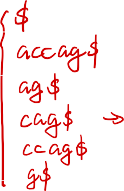 $
accag$
ag$
cag$ →
ccag$
g$